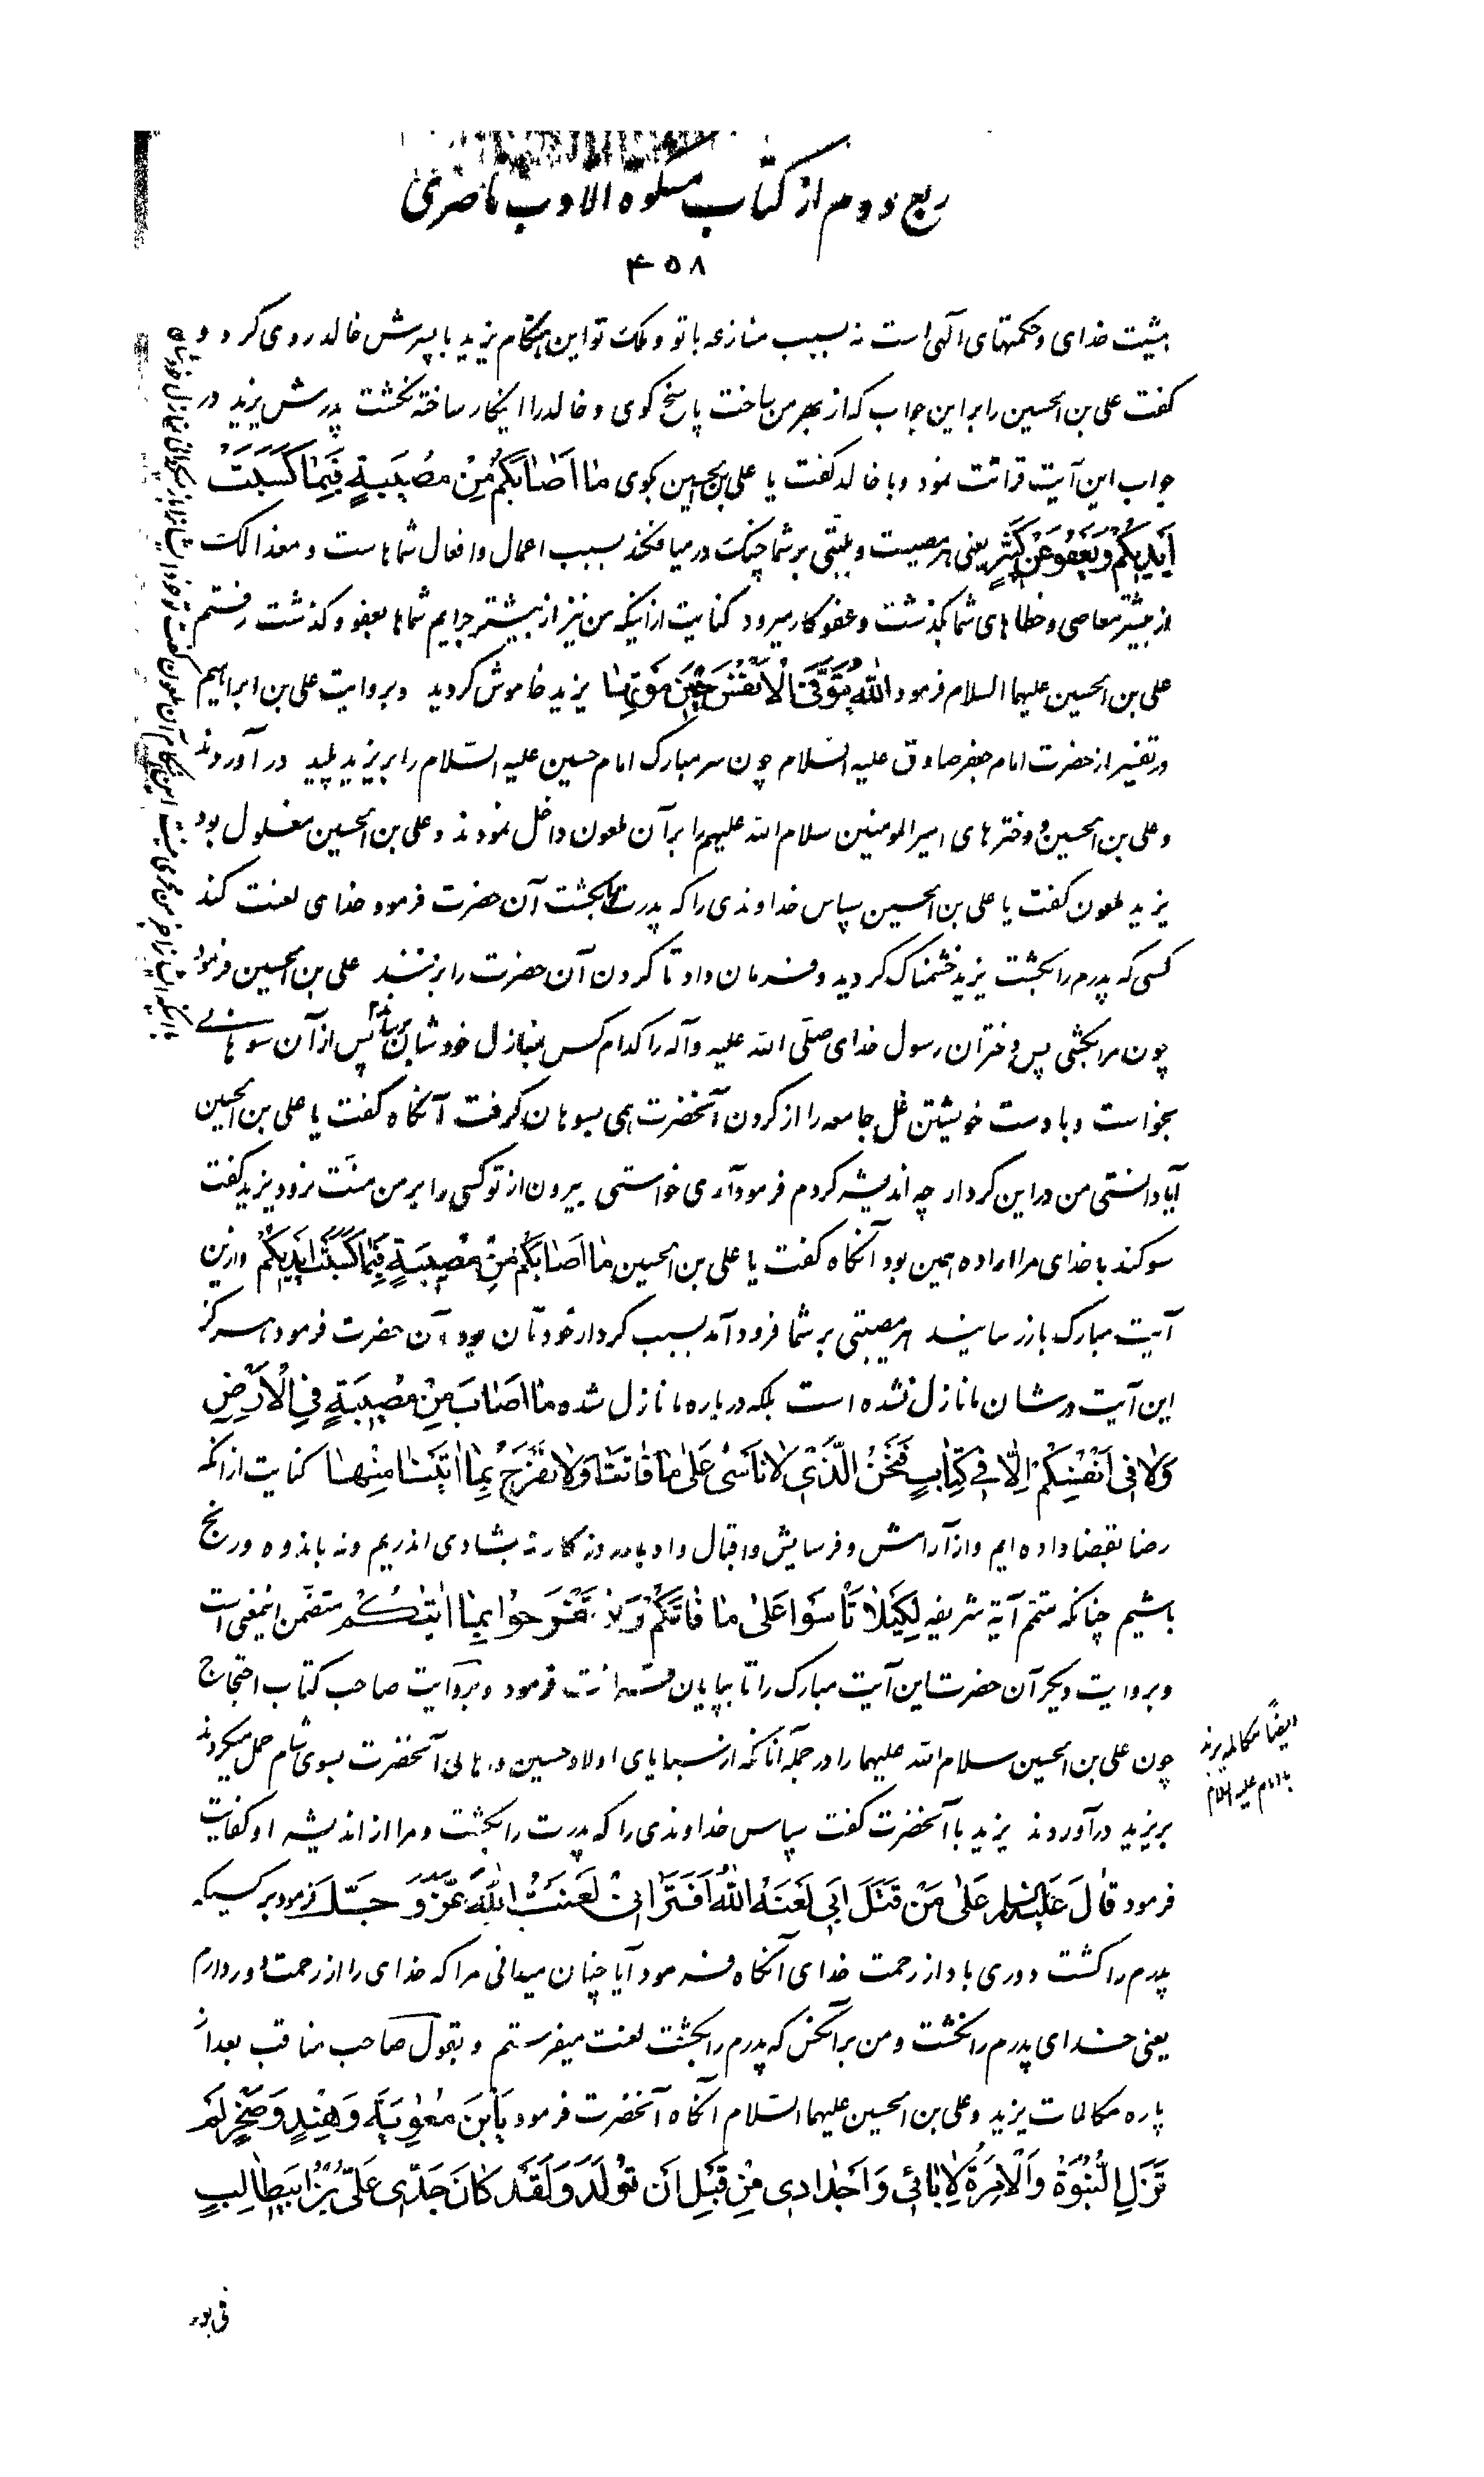 ربع دوم از کتاب مشکوة الادب ناصری
۴۵۸
بمشیت خدای و حکمتهای الهی است نه بسبب منازعه با تو و ملک تو این هنگام یزید با پسرش خالد روی کرد و
گفت علی بن الحسین را بر این جواب که از بهر من ساخت پاسخ گوی و خالد را اینکار ساخته نگشت پدرش یزید در
جواب این آیت قرائت نمود و با خالد گفت یا علی بن الحسین بگوی مٰا اَصٰابَکُمْ مِنْ مُصیبَةٍ فَبِمٰا کَسَبَتْ
اَیْدیکُمْ وَیَعْفُو عَنْ کَثیرٍ یعنی هر مصیبت و بلیتی بر شما چنگ درمیافکند بسبب اعمال و افعال شماهاست و معذالک
از بیشتر معاصی و خطاهای شما بگذشت و عفو کار میرود کنایت از اینکه من نیز از بیشتر جرایم شماها بعفو و گذشت رفتم
علی بن الحسین علیهما السلام فرمود اَللّٰهُ یَتَوَفَّی الْاَنْفُسَ حینَ مَوْتِهٰا یزید خاموش گردید و بروایت علی بن ابراهیم
در تفسیر از حضرت امام جعفر صادق علیه السلام چون سر مبارک امام حسین علیه السّلام را بر یزید پلید در آوردند
و علی بن الحسین و دخترهای امیر المومنین سلام الله علیهم را بر آن ملعون داخل نمودند و علی بن الحسین مغلول بود
یزید ملعون گفت یا علی بن الحسین سپاس خداوندی را که پدرت را بکشت آن حضرت فرمود خدای لعنت کند
کسی که پدرم را بکشت یزید خشمناک گردید و فرمان داد تا گردن آن حضرت را بزنند علی بن الحسین فرمود
چون مرا بکشی پس دختران رسول خدای صلّی الله علیه وآله را کدام کس بمنازل خودشان برساند پس از آن سوهانی
بخواست و با دست خویشتن غل جامعه را از گردن آنحضرت همی بسوهان گرفت آنگاه گفت یا علی بن الحسین
آیا دانستی من در این کردار چه اندیشه کردم فرمود آری خواستی بیرون از تو کسی را بر من منّت نرود یزید گفت
سوگند با خدای مرا اراده همین بود آنگاه گفت یا علی بن الحسین مٰا اَصٰابَکُمْ مِنْ مُصیبَةٍ فَبِمٰا کَسَبَتْ اَیْدیکُمْ و از این
آیت مبارک باز رسانید هر مصیبتی بر شما فرود آمد بسبب کردار خودتان بود آن حضرت فرمود هرگز
این آیت در شان ما نازل نشده است بلکه درباره ما نازل شده مٰا اَصٰابَ مِنْ مُصیبَةٍ فِی الْاَرْضِ
وَلٰا فی اَنْفُسِکُمْ اِلّٰا فی کِتٰابٍ فَنَحْنُ الَّذی لٰا نَاْسیٰ عَلیٰ مٰا فٰاتَنٰا وَلٰا نَفْرَحُ بِمٰا اٰتَیٰنٰا مِنْهٰا کنایت از آنکه
رضا بقضا داده ایم و از آرامش و فرسایش و اقبال و ادبار روزگار نه بشادی اندریم و نه باندوه و رنج
باشیم چنانکه متمم آیة شریفه لِکَیْلٰا تَاْسَوْا عَلیٰ مٰا فٰاتَکُمْ وَلٰا تَفْرَحُوْا بِمٰا اٰتٰیکُمْ متضمن اینمعنی است
و بروایت دیگر آن حضرت این آیت مبارک را تا بپایان قرائت فرمود و بروایت صاحب کتاب احتجاج
چون علی بن الحسین سلام الله علیهما را در جمله آنانکه از سبایای اولاد حسین و اهالی آنحضرت بسوی شام حمل میکردند
بر یزید در آوردند یزید با آنحضرت گفت سپاس خداوندی را که پدرت را بکشت و مرا از اندیشه او کفایت
فرمود قٰالَ عَلَیْهِ السَّلٰامُ عَلیٰ مَنْ قَتَلَ اَبی لَعْنَةُ اللّٰهِ اَفَتَرٰانی لَعَنْتُ اللّٰهَ عَزَّ وَ جَلَّ فرمود بر کسیکه
پدرم را کشت دوری باد از رحمت خدای آنگاه فرمود آیا چنان میدانی مرا که خدای را از رحمت دور دارم
یعنی خدای پدرم را نکشت و من بر آنکس که پدرم را بکشت لعنت میفرستم و بقول صاحب مناقب بعد از
پاره مکالمات یزید و علی بن الحسین علیهما السّلام آنگاه آنحضرت فرمود یَابْنَ مُعٰوِیَةَ وَ هِنْدٍ وَ صَخْرٍ لَمْ
تَزَلِ النُّبُوَّةُ وَ الْاِمْرَةُ لِاٰبٰائی وَ اَجْدٰادی مِنْ قَبْلِ اَنْ تُوْلَدَ وَ لَقَدْ کٰانَ جَدّی عَلِیُّ بْنُ اَبیطٰالِبٍ
ایضاً مکالمه یزید
با امام علیه السلام
فی یوم